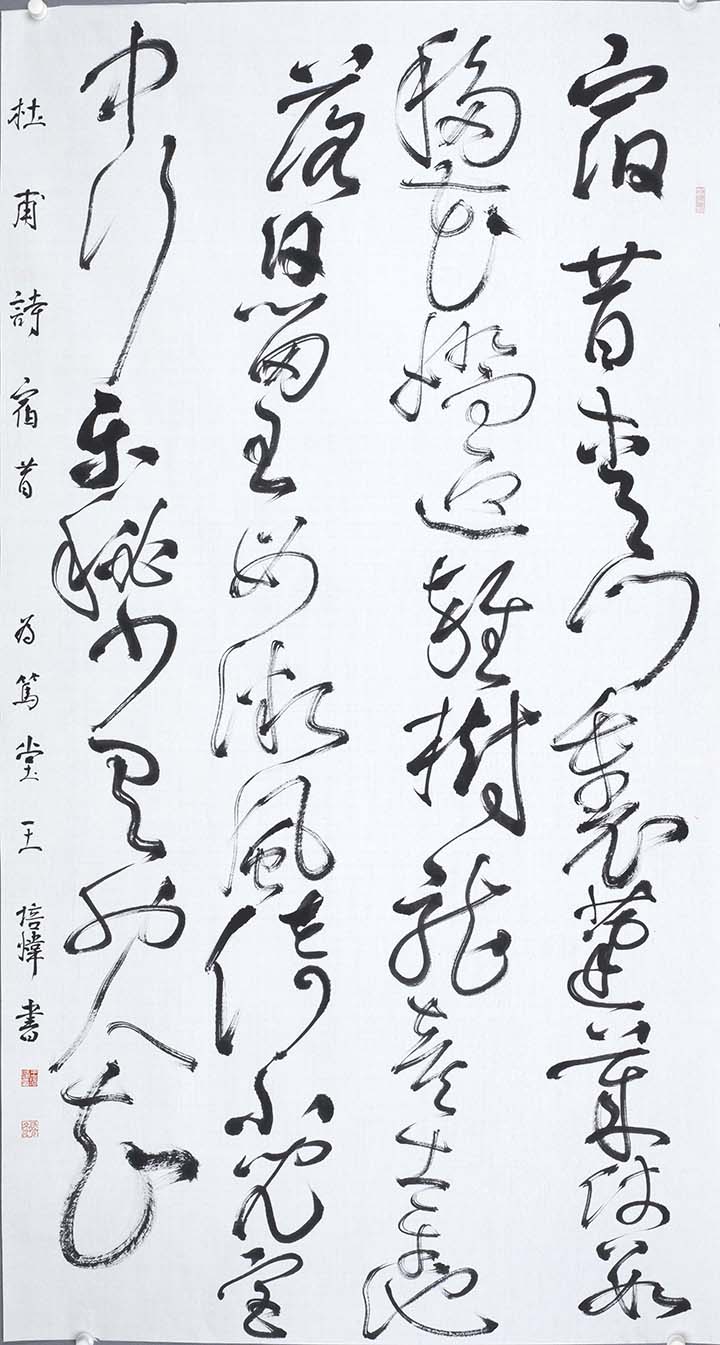 宿昔青門裏蓬萊仗數
移花嬌迎雜樹龍喜出平池
落日留王母微風倚少兒宮
中行樂秘少見外人知
杜甫詩宿昔 為篤堂王培煒書